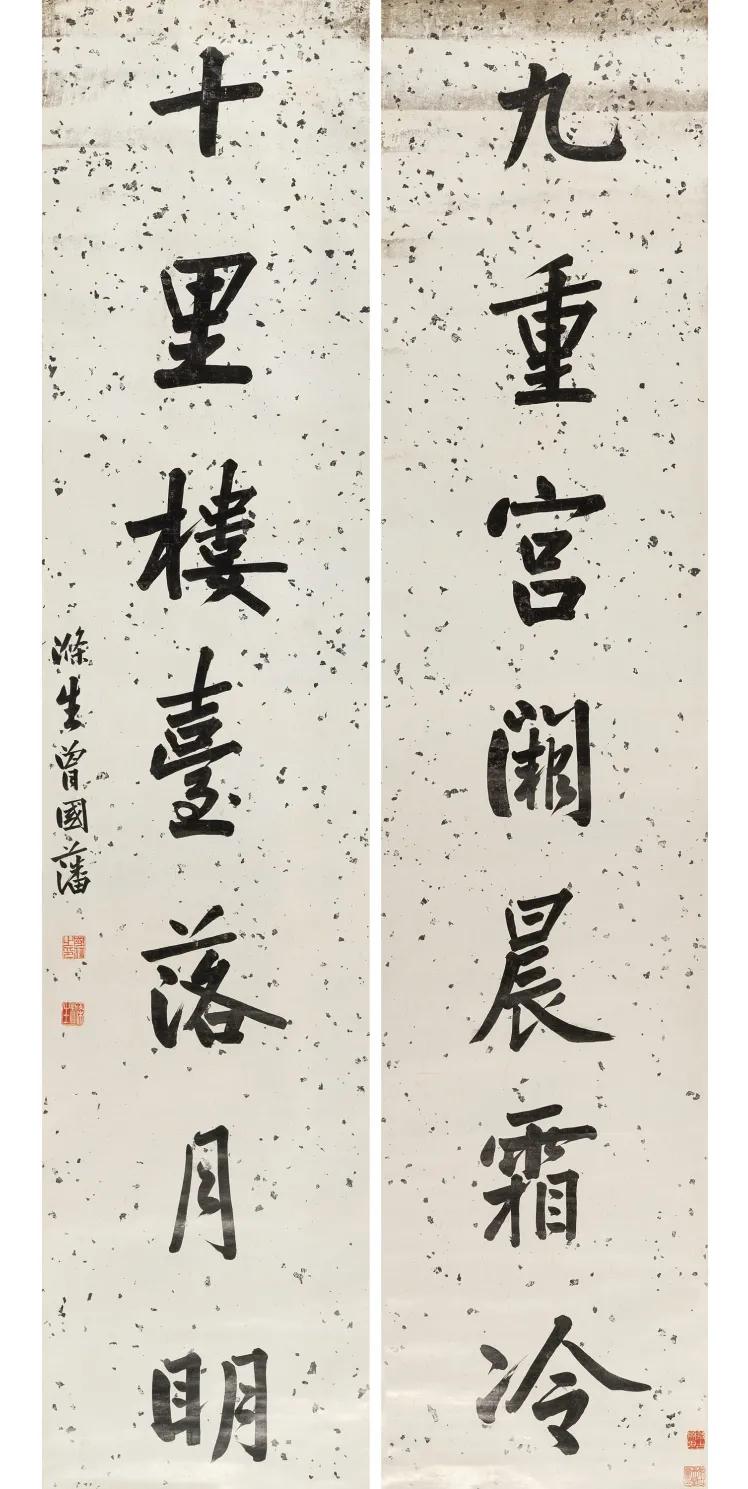 九重宮闕晨霜冷
十里樓臺落月明
滌生曾國藩